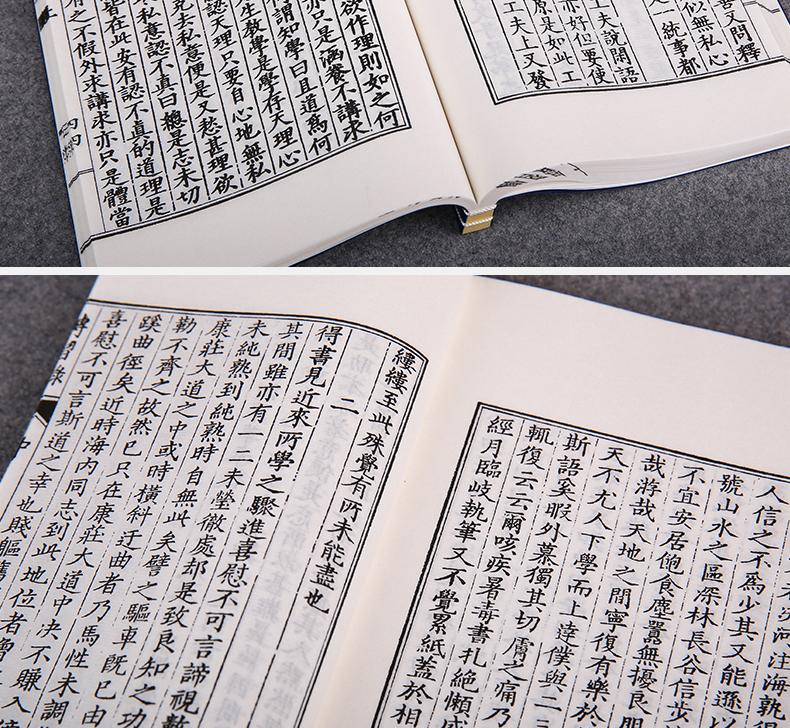 善又問釋
似無私心
統事都
夫說閒語
亦好但要使
原是如此工
工夫上又發
欲作理則如之何
亦只是涵養不講求
謂知學曰且道為何
生教學是學存天理心
認天理只要自心地無私
克去私意便是又愁甚理欲
私意認不真曰總是志未切
皆在此安有認不真的道理是
之不假外求講求亦只是體當
人信之不為少其又能遜以
號山水之區深林長谷信步
不宜安居飽食塵囂無擾良朋
哉游哉天地之間寧復有樂於
天不尤人下學而上達僕與二
斯語奚暇外慕獨其切膚之痛乃
輒復云云爾咳疾暑毒書札絕懶
經月臨歧執筆又不覺累紙蓋於相
縷縷至此殊覺有所未能盡也
二
得書見近來所學之驟進喜慰不可言諦視數
其間雖亦有一二未瑩徹處却是致良知之功
未純熟到純熟時自無此矣譬之驅車既已由
康莊大道之中或時橫斜迂曲者乃馬性未調
勒不齊之故然已只在康莊大道中決不賺入
蹊曲徑矣近時海內同志到此地位者曾
喜慰不可言斯道之幸也賤軀舊
傳習錄
中